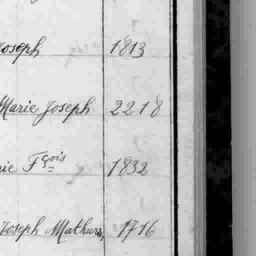 Joseph 1813
Marie Joseph 2218
rie Fçois 1832
Joseph Mathurin, 1716